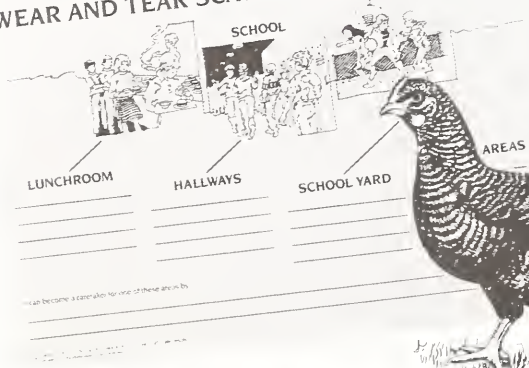 WEAR AND TEAR
SCHOOL
LUNCHROOM
HALLWAYS
SCHOOL YARD
AREAS
can become a caretaker for one of these areas by